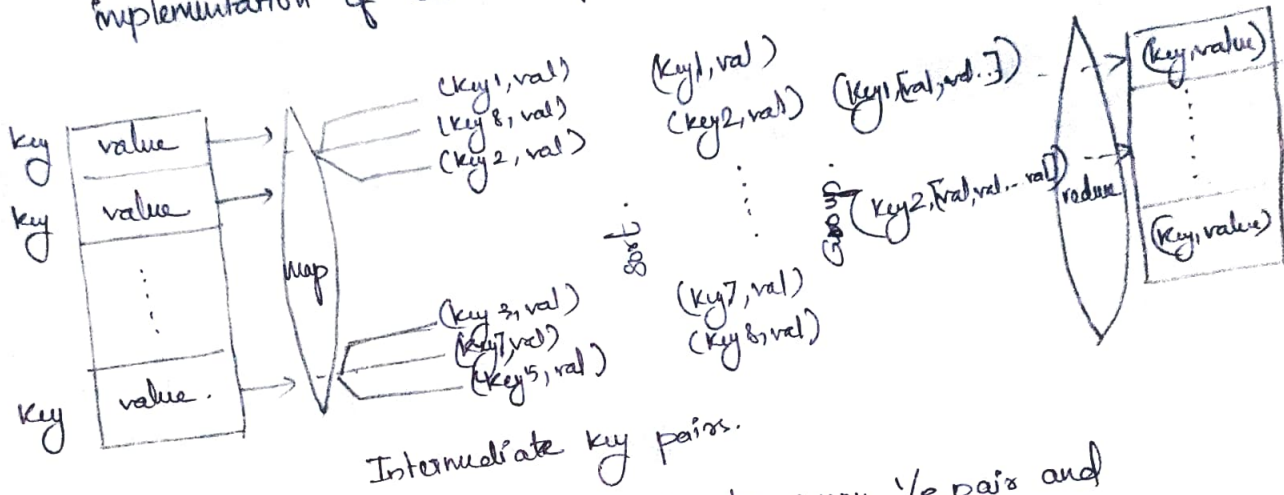 implementation of
key value
key value
key value.
map
(key1, val)
(key8, val)
(key2, val)
(key3, val)
(key7, val)
(key5, val)
Intermediate key pairs.
sort
(key1, val)
(key2, val)
(key7, val)
(key8, val)
Group
(key1,[val, val..])
(key2,[val,val...val])
reduce
(key,value)
(key,value)
i/p pair and